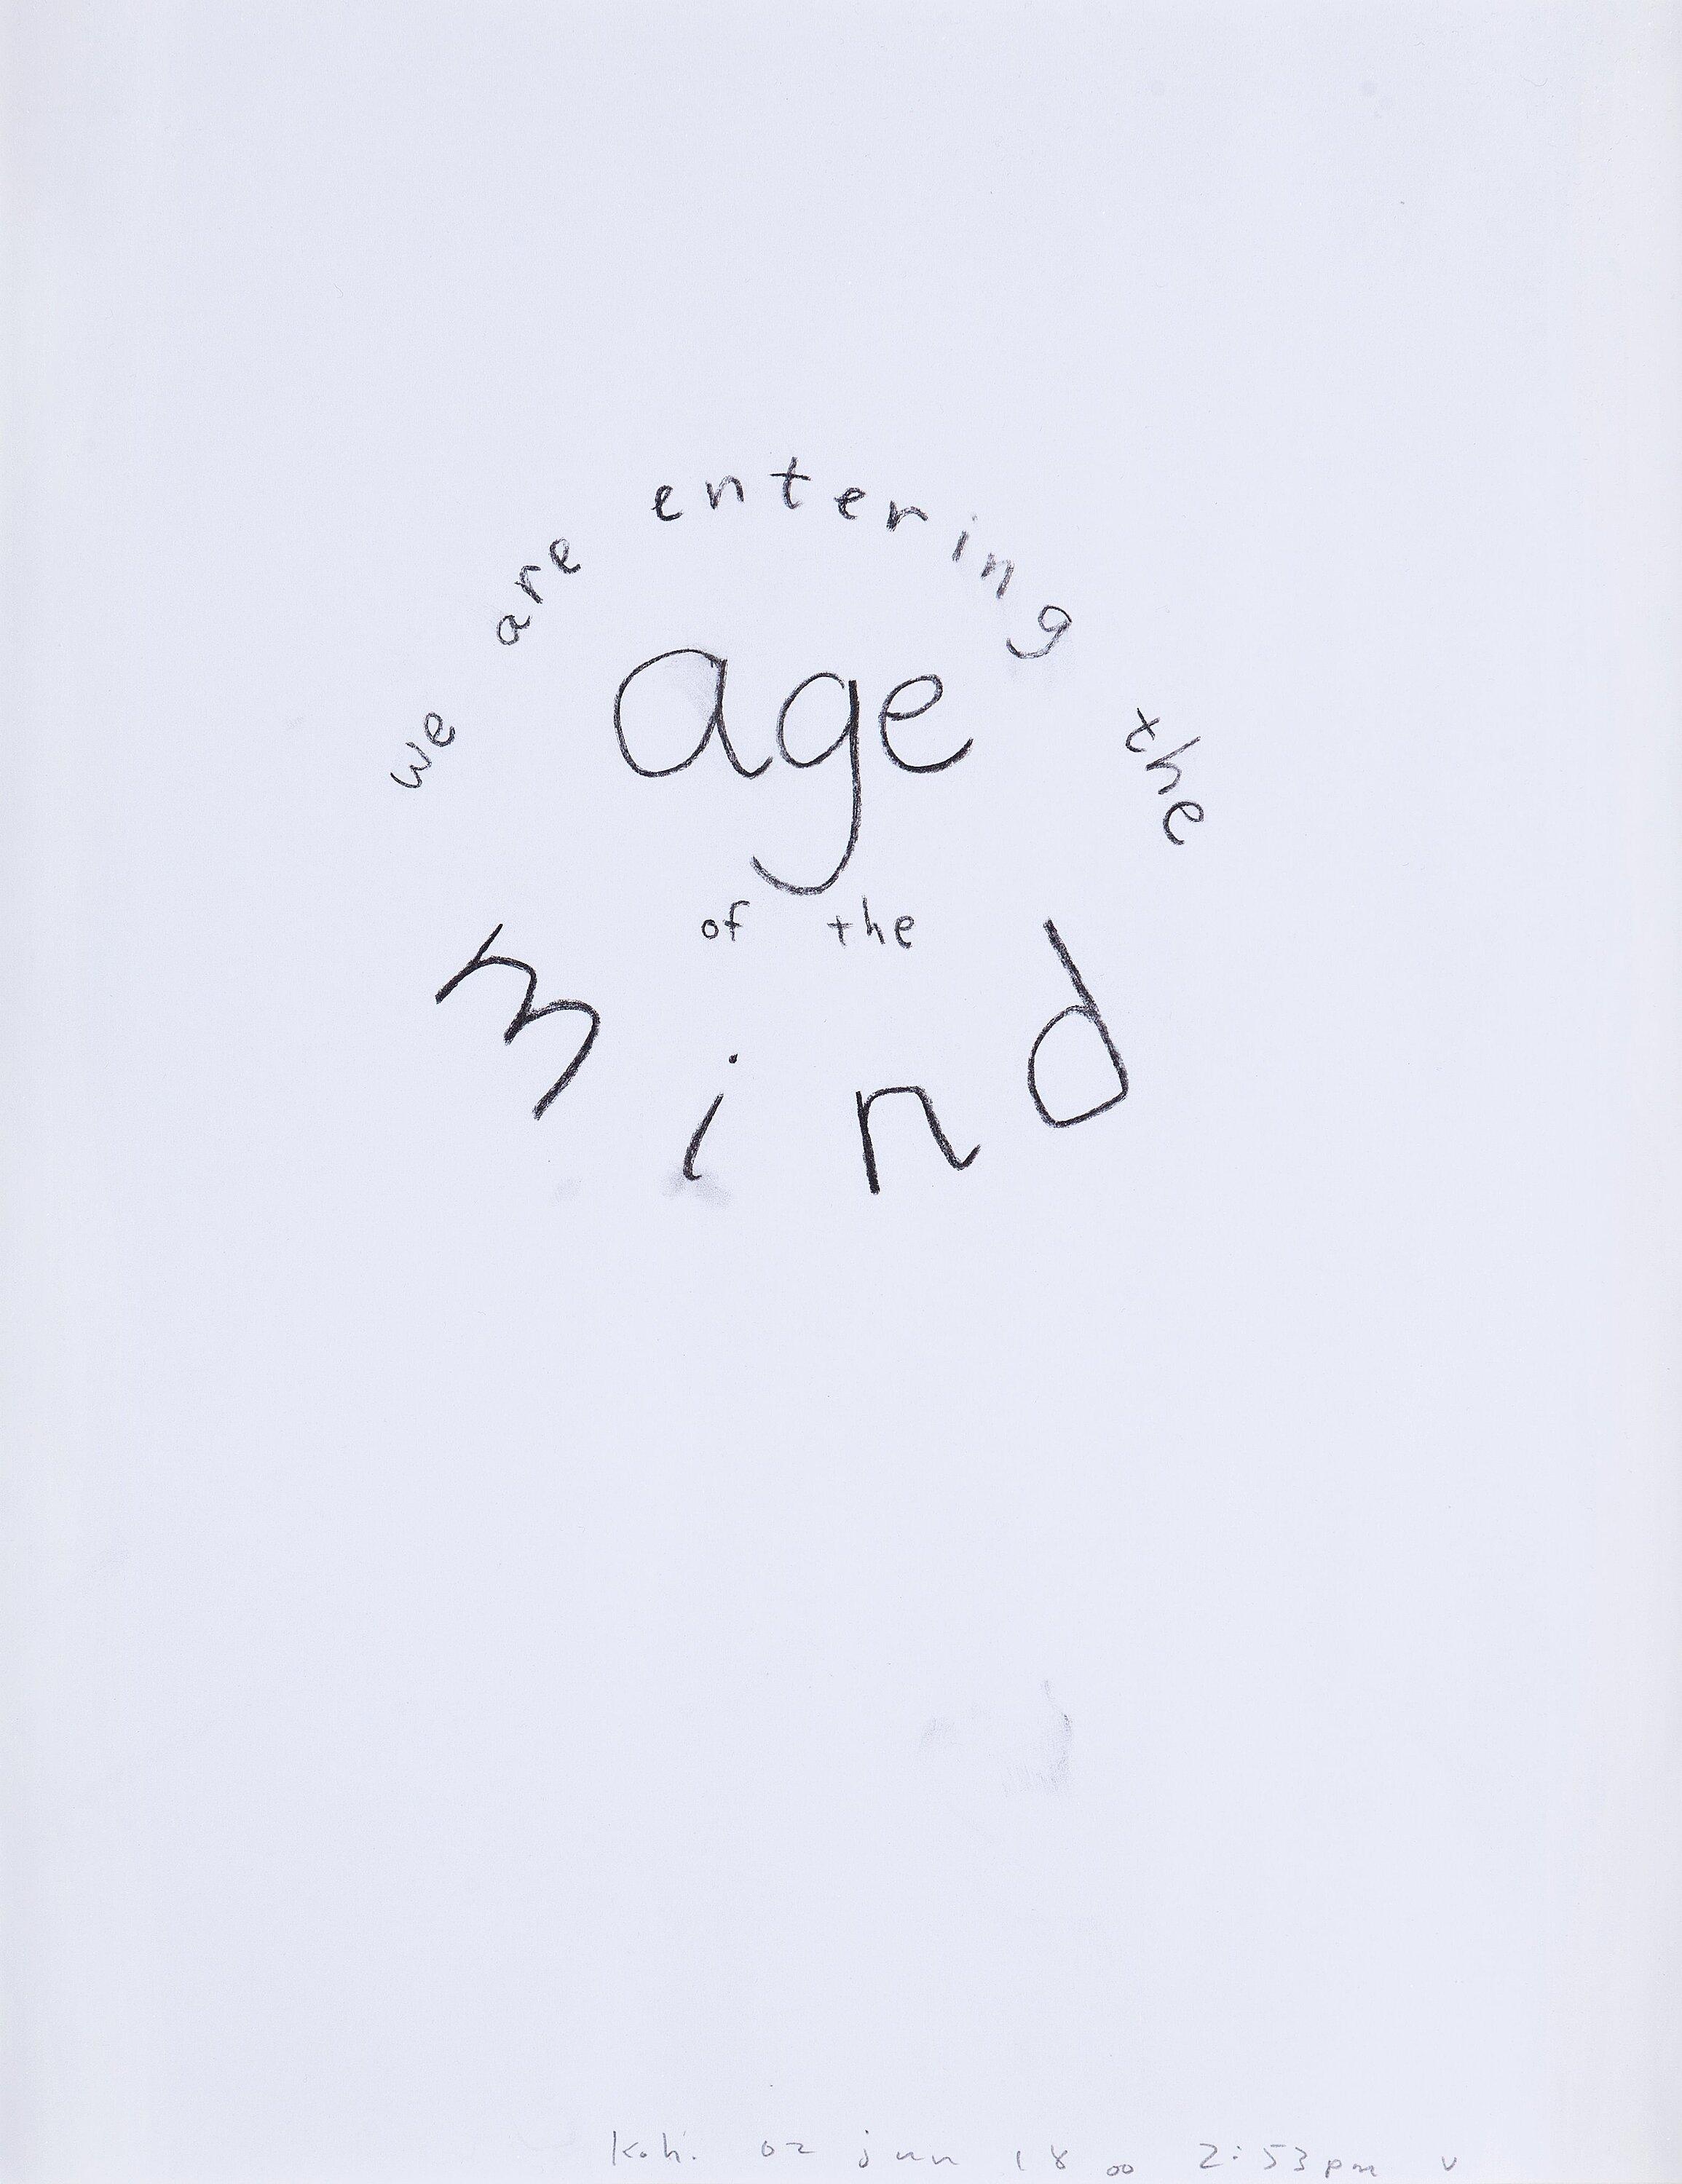 we are entering the
age
of the
mind
02 jun 18 2:53pm